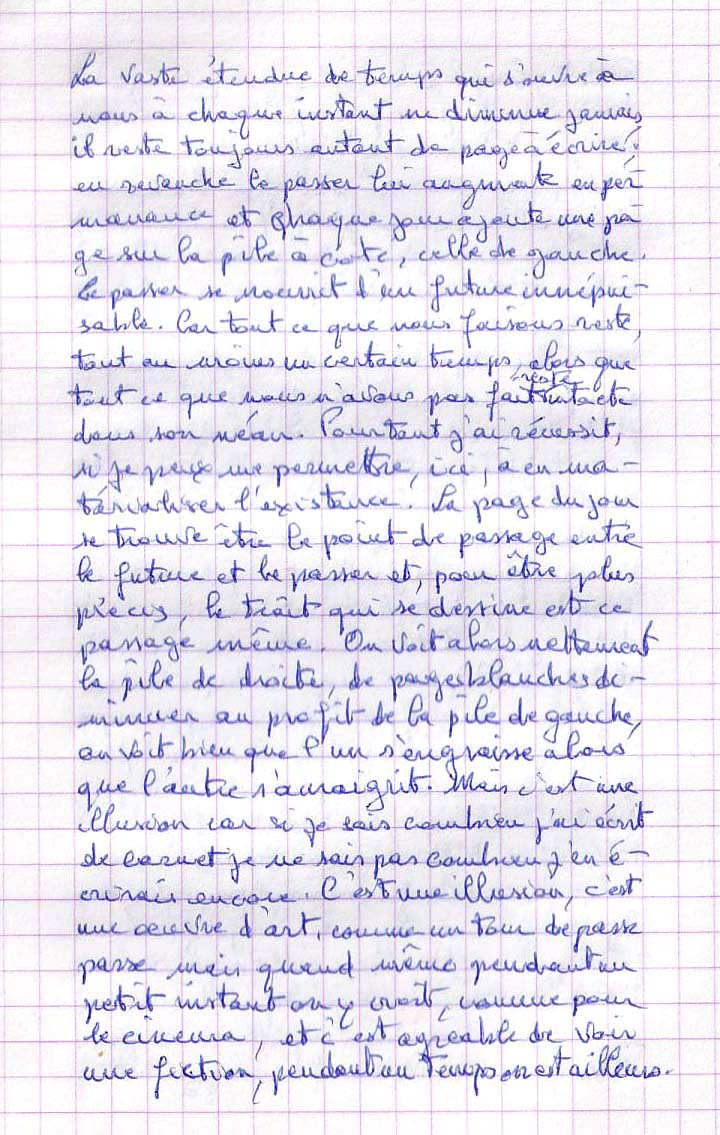 La vaste étendue de temps qui s'ouvre à
nous à chaque instant ne diminue jamais,
il reste toujours autant de page à écrire !
en revanche le passer lui augmente en per
manance et chaque jour ajoute une pa
ge sur la pile à coté, celle de gauche.
Le passer se nourrit d'un future innépui-
sable. Car tout ce que nous faisons reste,
tout au moins un certain temps, alors que
tout ce que nous n'avons pas fait reste intacte
dans son néan. Pourtant j'ai réeussit,
si je peux me permettre, ici, à en ma-
térialiser l'existance. La page du jour
se trouve être le point de passage entre
le future et le passer et, pour être plus
précis, le trait qui se dessine est ce
passage même. On voit alors nettement
la pile de droite, de pages blanches di-
minuer au profit de la pile de gauche,
on voit bien que l'un s'engraisse alors
que l'autre s'amaigrit. Mais c'est une
illusion car si je sais combien j'ai écrit
de carnet je ne sais pas combien j'en é-
crirais encore. C'est une illusion, c'est
une oeuvre d'art, comme un tour de passe
passe mais quand même pendant un
petit instant on y croit, comme pour
le cinéma, et c'est agréable de voir
une fiction, pendant un temps on est ailleurs.